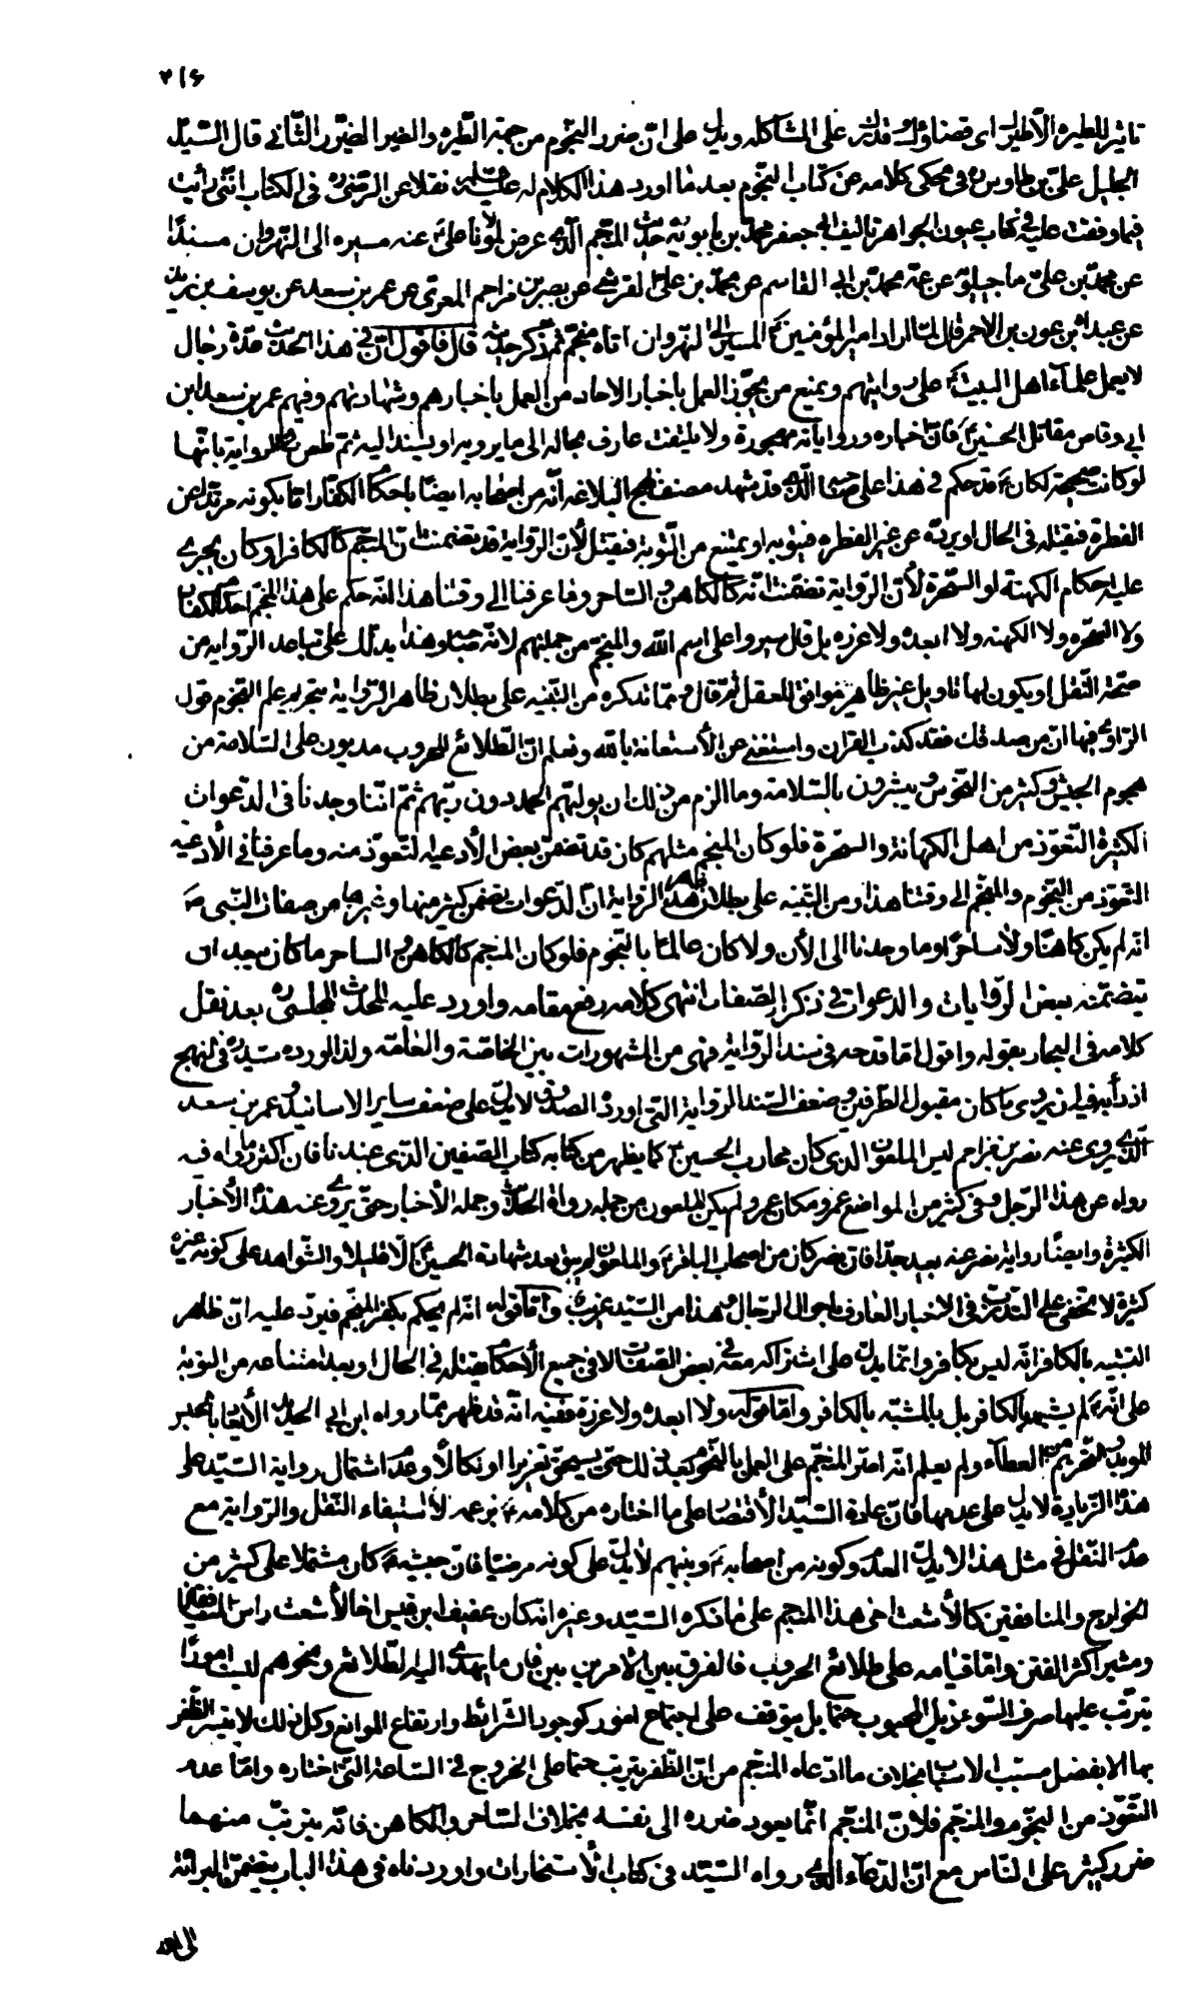 ٢١۶
تاثير للطيره الا طيرك اى قضاؤك و قدرك على المشاكله و يدل على ان ضرر النجوم من جهة الطيره و الخير الضرر الثانى قال السّيّد
الجليل علىّ بن طاوس ره فى محكى كلامه عن كتاب النجوم بعد ما اورد هذا الكلام له عليه السلام نقلا عن الرضى ره فى الكتاب انّنى رأيت
فيما وقفت عليه فى كتاب عيون الجواهر تاليف ابى جعفر محمّد بن بابويه ره حديث المنجم الّذى عرض لمولانا علىّ ع عند مسيره الى النهروان مسندًا
عن محمّد بن علىّ ماجيلويه عن عمّه محمّد بن ابى القاسم عن محمّد بن على القرشى عن نصر بن مزاحم المنقرى عن عمر بن سعد عن يوسف بن يزيد
عن عبد اللّه بن عوف بن الاحمر قال لمّا اراد امير المؤمنين ع المسير الى النهروان اتاه منجّم ثم ذكر حديثه قال فاقول انّ فى هذا الحديث عدّة رجال
لا يعمل علماء اهل البيت ع على روايتهم و يمنع من يجوّز العمل باخبار الاحاد من العمل باخبارهم و شهادتهم و فيهم عمر بن سعد ابن
ابى وقاص مقاتل الحسين ع فانّ اخباره و رواياته مهجورة و لا يلتفت عارف بحاله الى ما يرويه او يسند اليه ثم طعن فى الرواية بانّها
لو كانت صحيحة لكان ع قد حكم فى هذا على صاحبه الّذى قد شهد مصنف نهج البلاغه انّه من اصحابه ايضًا باحكام الكفّار امّا بكونه مرتدا عن
الفطرة فيقتله فى الحال او يردّه عن غير الفطره فيتوبه او يمتنع من التوبة فيقتل لأنّ الرواية قد تضمنت انّ المنجم كالكافر او كان يجرى
عليه احكام الكهنة او السّحرة لأنّ الرواية تضمّنت انّه كالكاهن و الساحر و ما عرفنا الى وقتنا هذا انّه حكم على هذا المنجم احكام الكفار
و لا السحره و لا الكهنه و لا ابعده و لا عزره بل قال سيروا على اسم الله و المنجّم من جملتهم لانّه صاحبه و هذا يدلك على تباعد الرواية من
صحّة النّقل او يكون لها تاويل غير ظاهرها موافق للعقل ثم قال و ممّا نذكره من التنبيه على بطلان ظاهر الرّواية بتحريم علم النجوم قول
الرّاوى فيها انّ من صدقك فقد كذب القران و استغنى عن الأستعانة بالله و نعلم انّ الطّلائع للحروب يدلون على السّلامة من
هجوم الجيش و كثير من النحوس و يبشرون بالسّلامة و ما الزم من ذلك ان يوليهم الحمد دون ربّهم ثمّ انّنا وجدنا فى الدّعوات
الكثيرة التّعوّذ من اهل الكهانة و السحرة فلو كان المنجم مثلهم كان قد تضمّن بعض الأدعية التعوّذ منه و ما عرفنا فى الأدعية
التعوّذ من النجوم و المنجّم الى وقتنا هذا و من التنبيه على بطلان ظاهر هذه الرّواية انّ الدّعوات تضمن كثير منها و غيرها من صفات النّبى ص
انّه لم يكن كاهنًا و لا ساحرًا و ما وجدنا الى الأن و لا كان عالمًا بالنجوم فلو كان المنجم كالكاهن و الساحر ما كان يبعد ان
يتضمّنه بعض الرّوايات و الدعوات فى ذكر الصّفات انتهى كلامه رفع مقامه و اورد عليه المحدّث المجلسى ره بعد نقل
كلامه فى البحار بقوله و اقول امّا قدحه فى سند الرّواية فهى من المشهورات بين الخاصّة و العامّه و لذا اورده السيّد ره فى النهج
اذ دأبه فيه ان يروى ما كان مقبول الطّرفين و ضعف السّند الرواية الّتى اوردها الصدوق لا يدلّ على ضعف ساير الاسانيد و عمر بن سعد
الّذى يروى عنه نصر بن مزاحم ليس الملعون الذى كان محارب الحسين ع كما يظهر من كتابه كتاب الصّفين الّذى عندنا فان اكثر ما رواه فيه
رواه عن هذا الرّجل و فى كثير من المواضع عمرو مكان عمر و لم يكن الملعون من جمله رواة الحديث و حمله الأخبار حتّى يروى عنه هذه الأخبار
الكثيرة و ايضًا رواية نصر عنه بعيد جدّا فان نصر كان من اصحاب الباقر ع و الملعون لم يبق بعد شهادة الحسين ع الّا قليلا و الشّواهد على كونه غيره
كثيرة لا تخفى على المتدرب فى الاخبار العارف باحوال الرّجال و هذا من السّيّد غريب و امّا قوله انّه لم يحكم بكفر المنجّم فيرد عليه انّ ظاهر
التشبيه بالكافر انّه ليس بكافر و انّما يدلّ على اشتراكه معه فى بعض الصّفات لا فى جميع الأحكام حتى يقتله فى الحال او بعد امتناعه من التوبة
على انّه ع لم يشبهه بالكافر بل بالمشبّه بالكافر و امّا قوله و لا ابعده و لا عزره ففيه انّه قد ظهر ممّا رواه ابن ابى الحديد الأيعاد بالحبس
المؤبد و التحريم من العطآء و لم يعلم انّه اصرّ المنجّم على العمل بالنجوم بعد ذلك حتى يستحق تعزيرا او نكالا و عدم اشتمال رواية السّيّد على
هذه الزّيادة لا يدل على عدمها فانّ عادة السّيّد الأقتصار على ما اختاره من كلامه ع بزعمه لا استيفاء النّقل و الرّواية مع
عدم النّقل فى مثل هذا لا يدل على العدم و كونه من اصحابه ع و بينهم لا يدلّ على كونه مرضيّا فانّ جيشه ع كان مشتملا على كثير من
الخوارج و المنافقين كالأشعث اخى هذا المنجم على ما ذكره السّيّد و غيره انّه كان عفيف ابن قيس اخا الأشعث راس المنافقين
و مثير اكثر الفتن و امّا قياسه على طلائع الحروب فالفرق بين الامرين بين فان ما يهدى اليه الطّلائع و نحوهم ليست امورًا
يترتّب عليها صرف السّوء و نيل المحبوب حتما بل يتوقف على اجتماع امور كوجود الشّرائط و ارتفاع الموانع و كل ذلك لا يتيسر الظّفر
بها الا بفضل مسبّب الاسباب بخلاف ما ادّعاه المنجّم من انّ الظّفر يترتّب حتما على الخروج فى السّاعة الّتى اختاره و امّا عدم
التّعوّذ من النجوم و المنجّم فلانّ المنجّم انّما يعود ضرره الى نفسه بخلاف السّاحر و الكاهن فانّه يترتّب منهما
ضرر كثير على النّاس مع انّ الدّعآء الّذى رواه السّيّد فى كتاب الأستخارات و اوردناه فى هذا الباب يتضمّن البرائة
الى الله